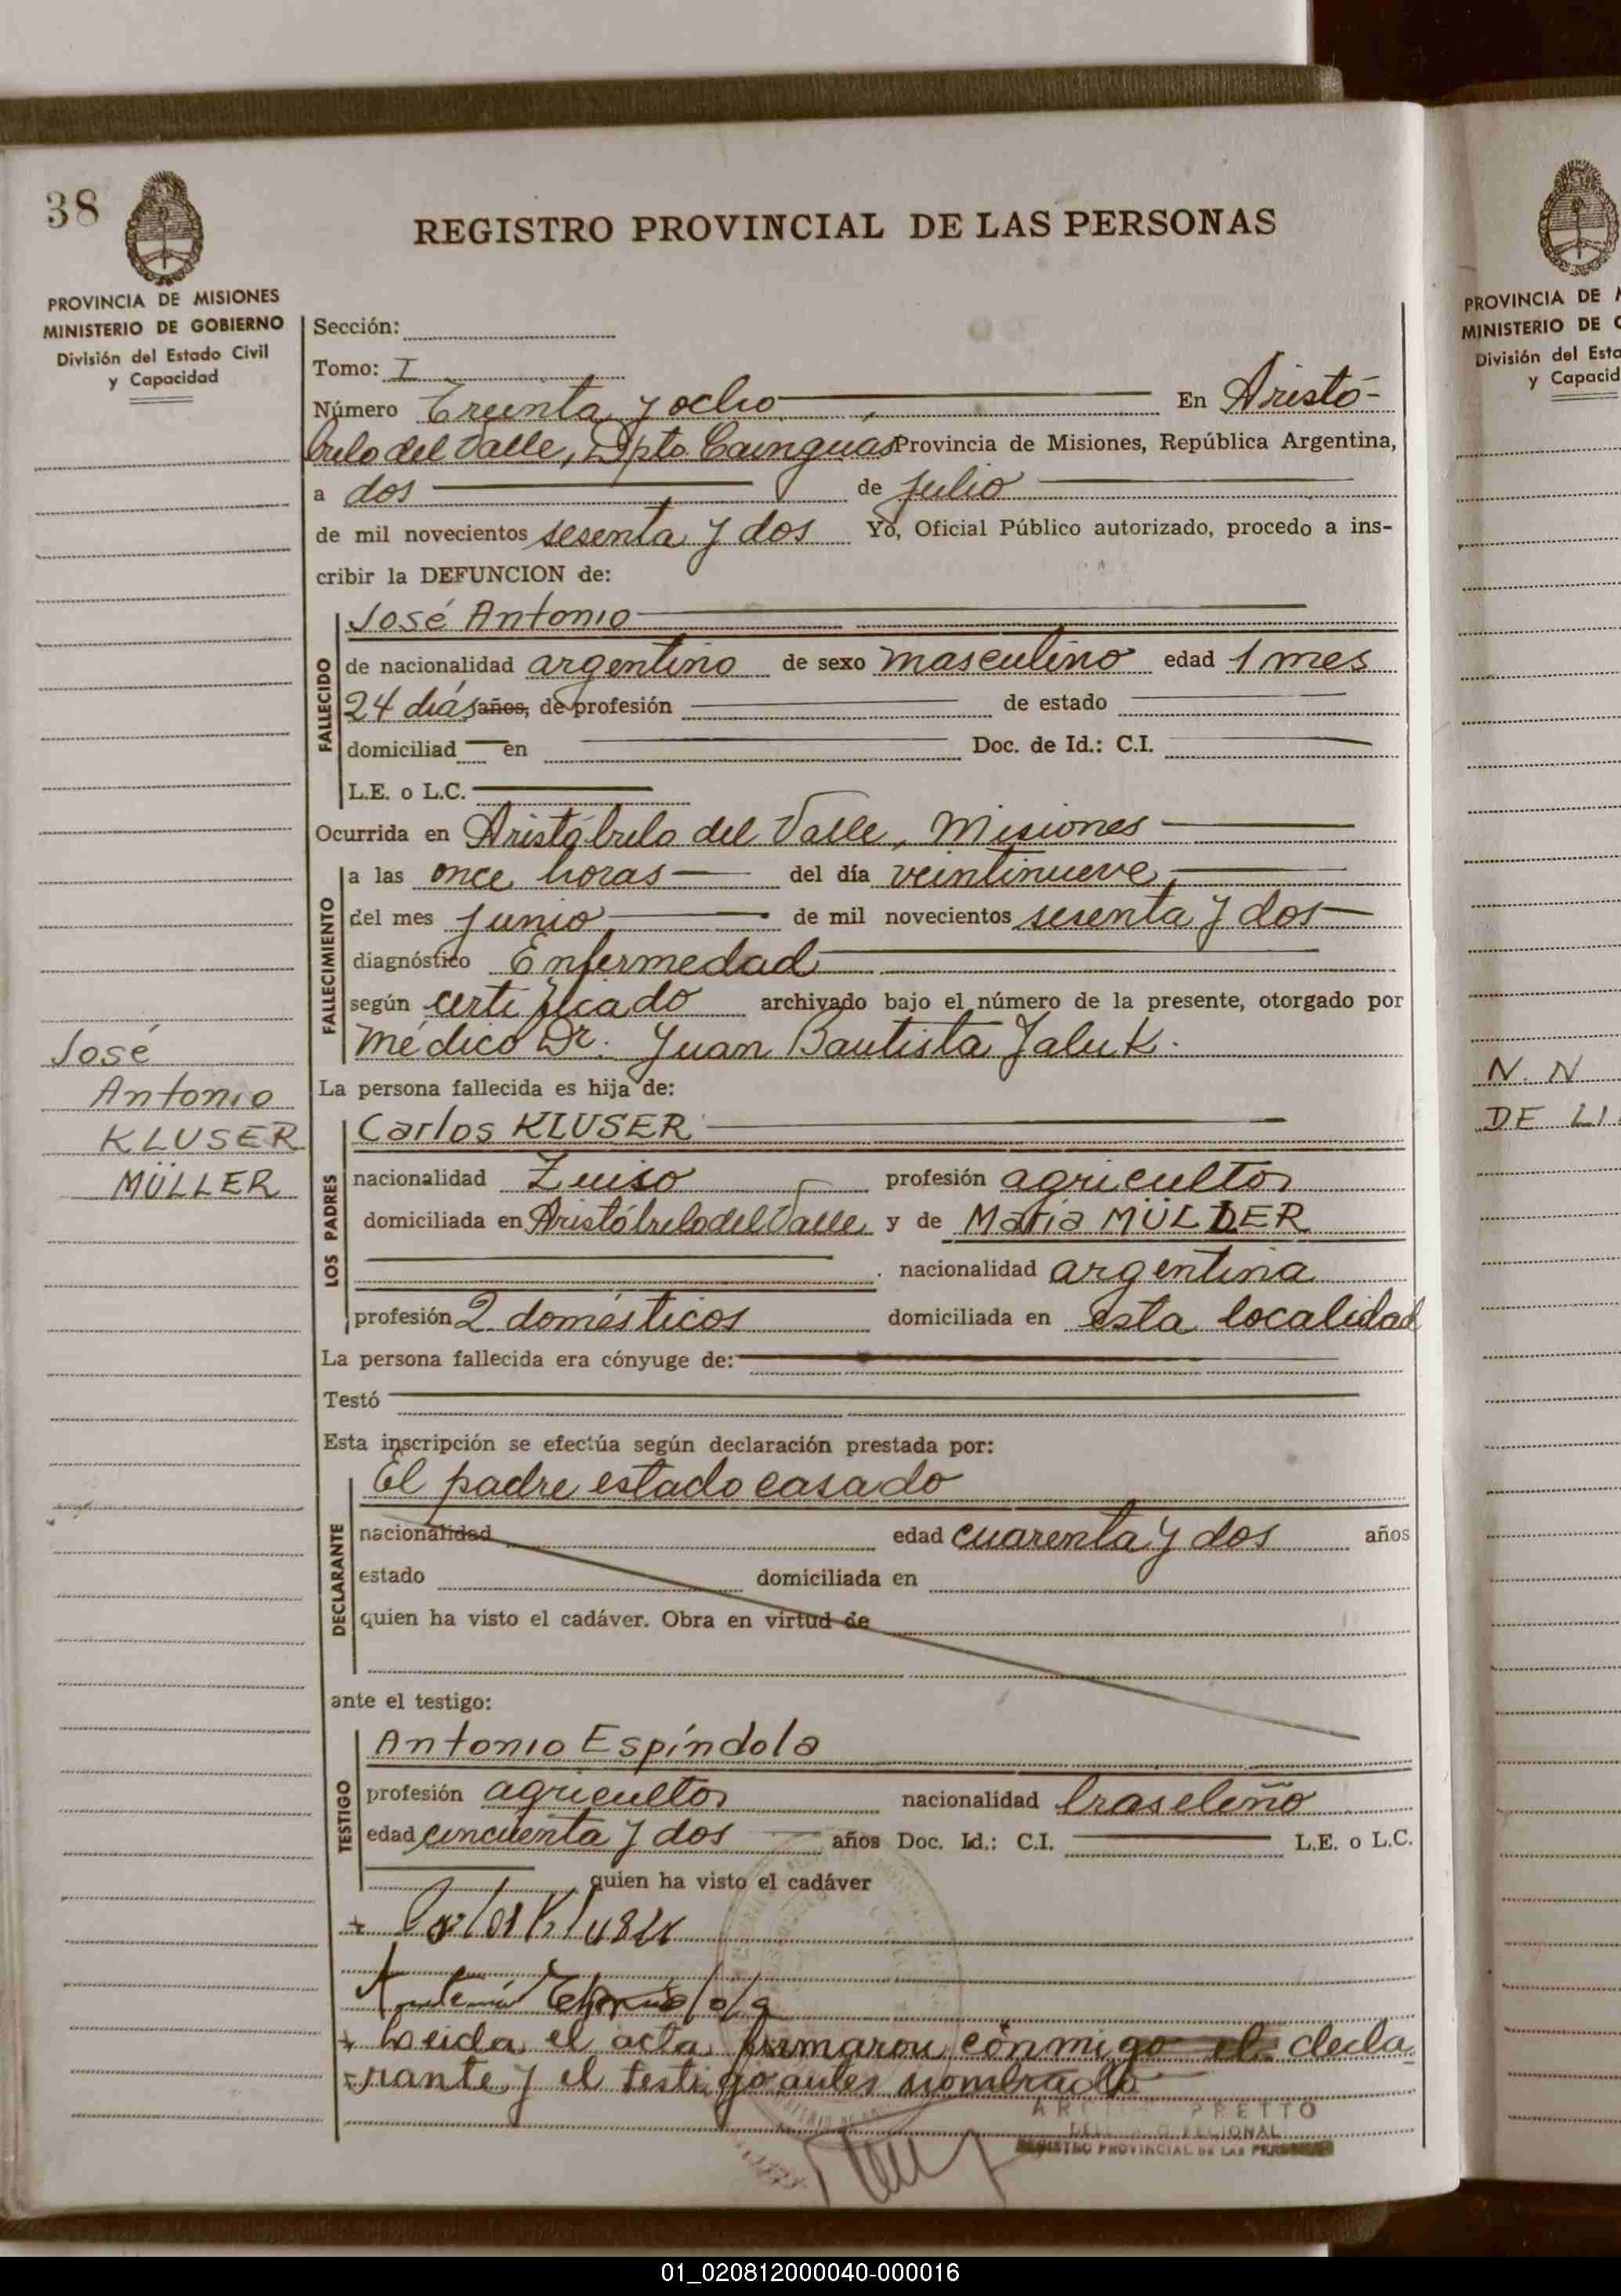 38
REGISTRO PROVINCIAL DE LAS PERSONAS
PROVINCIA DE MISIONES
MINISTERIO DE GOBIERNO
División del Estado Civil
y Capacidad
Sección:
Tomo: I
Número Treinta y ocho En Aristó-
bulo del Valle, Dpto. Cainguás Provincia de Misiones, República Argentina,
a dos de julio
de mil novecientos sesenta y dos Yo, Oficial Público autorizado, procedo a ins-
cribir la DEFUNCION de:
FALLECIDO
José Antonio
de nacionalidad argentino de sexo masculino edad 1 mes
24 días años, de profesión de estado
domiciliad en Doc. de Id.: C.I.
L.E. o L.C.
Ocurrida en Aristóbulo del Valle, Misiones
FALLECIMIENTO
a las once horas del día veintinueve,
del mes junio de mil novecientos sesenta y dos
diagnóstico Enfermedad
según certificado archivado bajo el número de la presente, otorgado por
médico Dr. Juan Bautista Jaluk.
La persona fallecida es hija de:
José
Antonio
KLUSER
MÜLLER
LOS PADRES
Carlos KLUSER
nacionalidad Zuiso profesión agricultor
domiciliada en Aristóbulo del Valle y de María MÜLLER
nacionalidad argentina
profesión Q. domésticos domiciliada en esta localidad
La persona fallecida era cónyuge de:
Testó
Esta inscripción se efectúa según declaración prestada por:
DECLARANTE
El padre estado casado
nacionalidad edad cuarenta y dos años
estado domiciliada en
quien ha visto el cadáver. Obra en virtud de
ante el testigo:
TESTIGO
Antonio Espíndola
profesión agricultor nacionalidad brasileño
edad cincuenta y dos años Doc. Id.: C.I. L.E. o L.C.
quien ha visto el cadáver
+ Carlos Kluser
+ Leida el acta firmaron conmigo el decla
rante y el testigo antes nombrado
PRETTO
REGISTRO PROVINCIAL DE LAS
PROVINCIA DE
MINISTERIO DE
División del Esta
y Capacid
N. N
DE LI
01_020812000040-000016